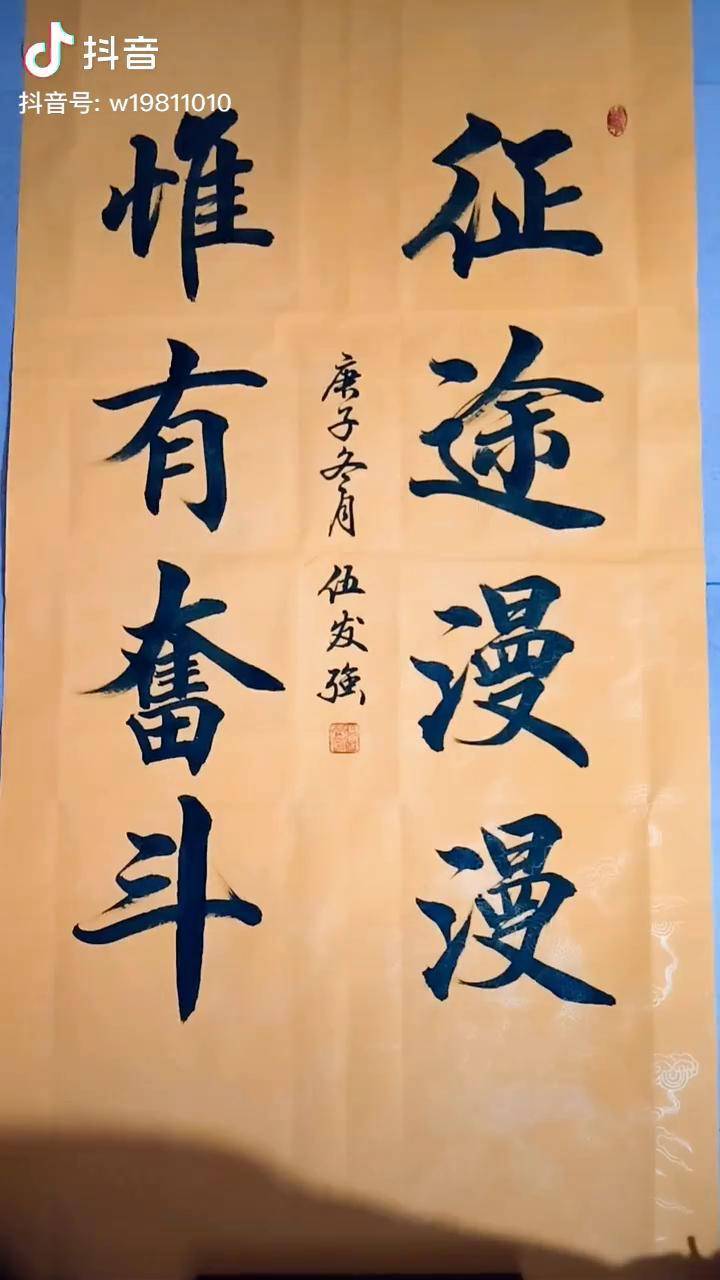 抖音
抖音号: w19811010
征途漫漫
惟有奮斗
庚子冬月 伍发强